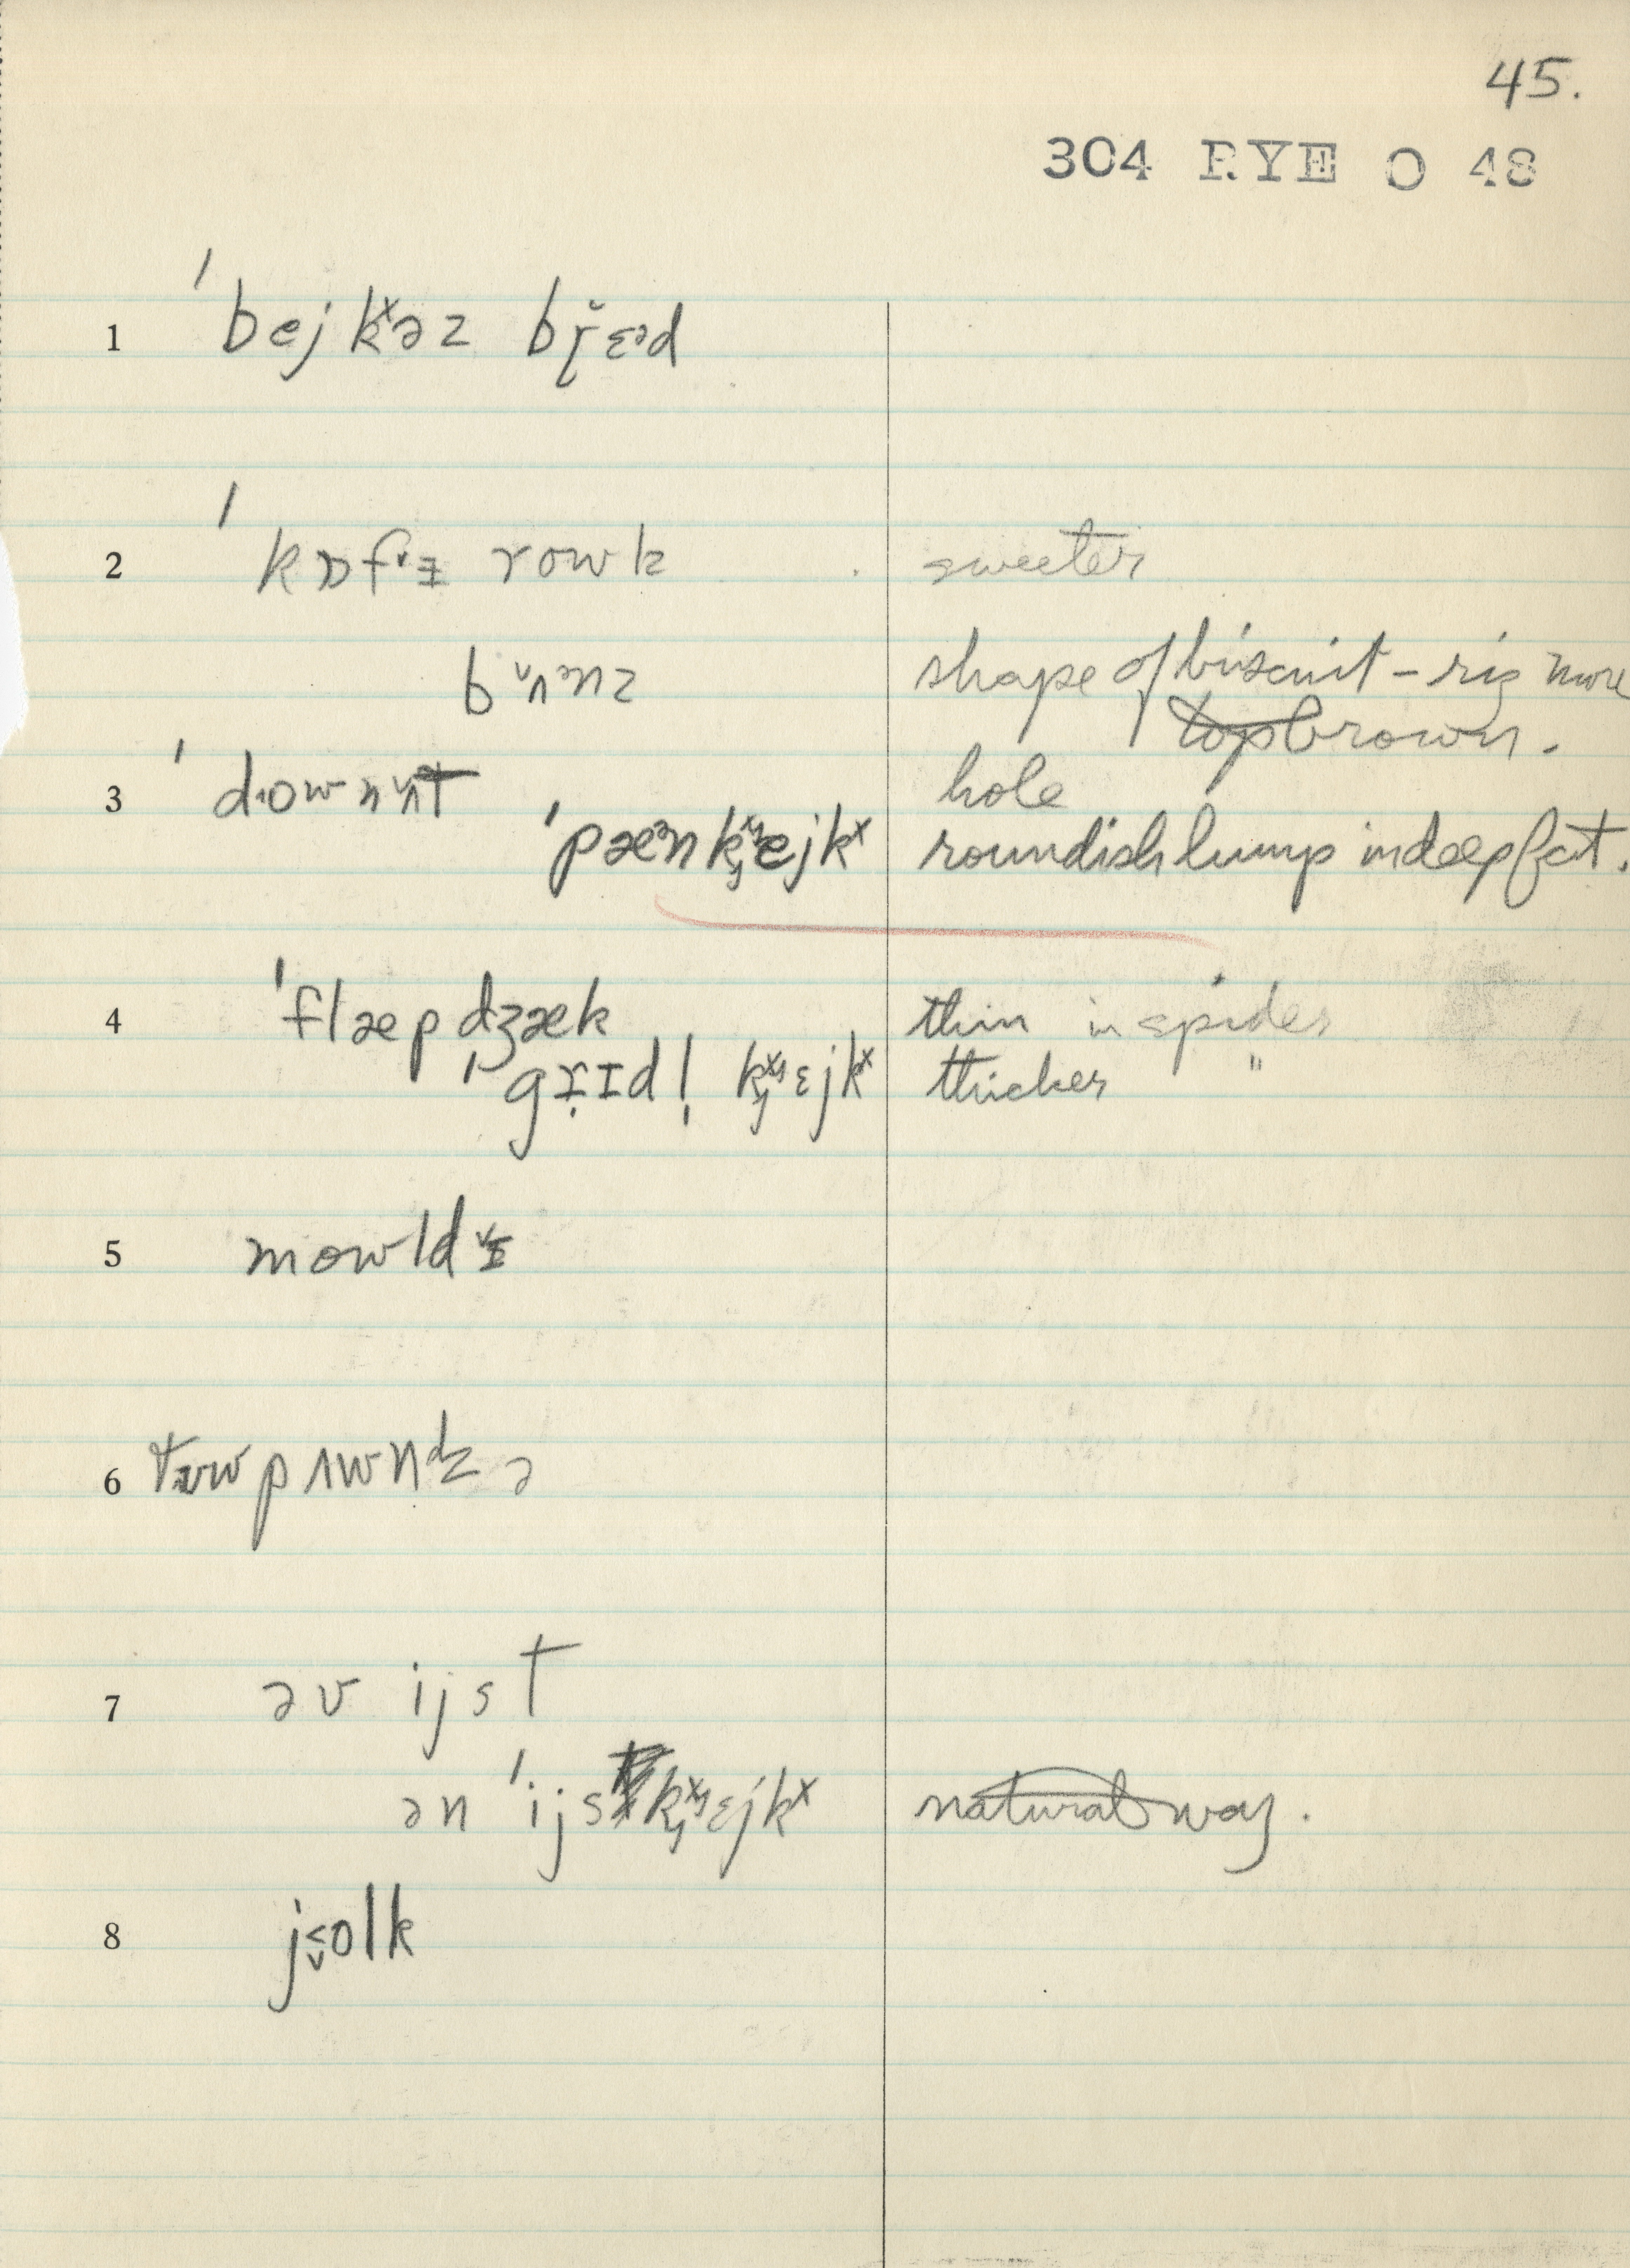 45.
304 RYE O 48
1 ˈbejkˣəz bɽ̆ɛᵊd
2 ˈkɒf˅ɪ rowk sweeter
bʌ˅nᵊnz shape of biscuit – riz more
top brown.
3 ˈdownʌ˅t hole
ˈpæᵊnkˣejkˣ roundish lump in deep fat.
4 ˈflæpdʒæk thin in spider
ˈgrɪdl̩ kˣɛjkˣ thicker "
5 mowld˅ɪ
6 tʉwpʌwndz ə
7 əv ijst
ən ˈijstkˣɛjkˣ natural way.
8 jolk